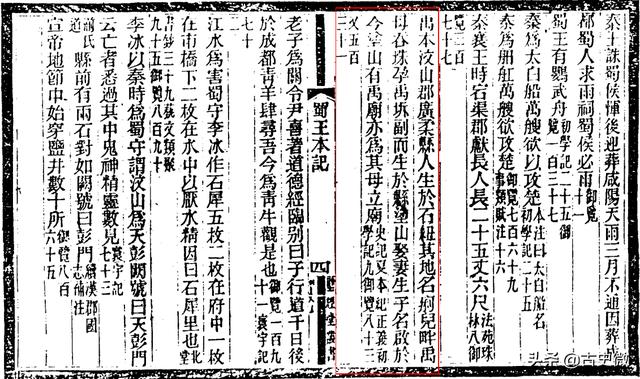 秦王誅蜀侯惲後迎葬咸陽天雨三月不通因葬成
都蜀人求雨祠蜀侯必雨御覽
蜀王有鸚武舟初學記二十五御覽一百三十七
秦爲太白船萬艘欲以攻楚本注曰太白船名初學記二十五
秦爲舶舡萬艘欲攻楚御覽七百六十九事類賦注十六
秦襄王時宕渠郡獻長人長二十五丈六尺法苑珠林八御
覽三百七十七
禹本汶山郡廣柔縣人生於石紐其地名痢兒畔禹
母吞珠孕禹坼副而生於縣塗山娶妻生子名啟於
今塗山有禹廟亦爲其母立廟史記夏本紀正義初學記九御覽八十三
又五百三十一
蜀王本記
四
老子爲關令尹喜著道德經臨別曰子行道千日後
於成都青羊肆尋吾今爲青牛觀是也御覽一百九十一寰宇記
七十二
江水爲害蜀守李冰作石犀五枚二枚在府中一枚
在市橋下二枚在水中以厭水精因曰石犀里也北堂
書鈔三十九藝文類聚九十五御覽八百九十
李冰以秦時爲蜀守謂汶山爲天彭闕號曰天彭門
云亡者悉過其中鬼神精靈數見寰宇記七十三
湔氏道縣前有兩石對如闕號曰彭門續漢郡國志補注
宣帝地節中始穿鹽井數十所御覽八百六十五
头条 @古史微